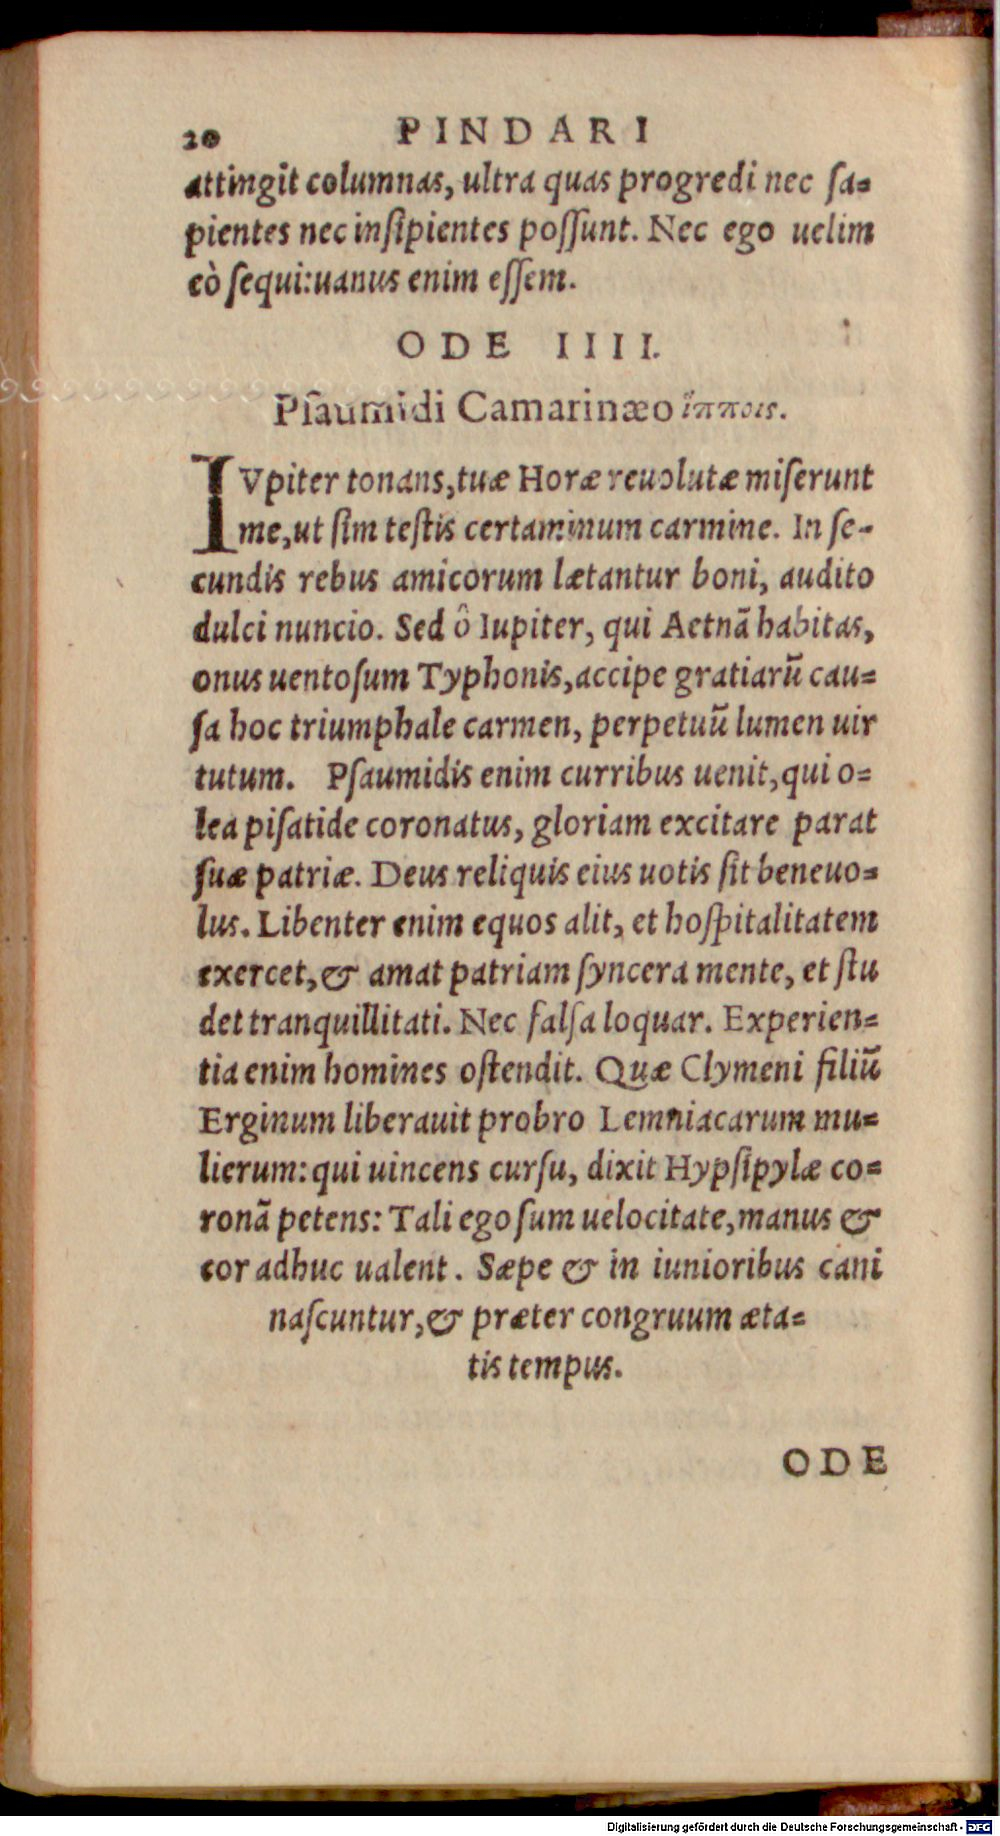 20 PINDARI
attingit columnas, ultra quas progredi nec ſa-
pientes nec inſipientes poſſunt. Nec ego uelim
eò ſequi: uanus enim eſſem.
ODE IIII.
Pſaumidi Camarinæo ἵπποις.
IVpiter tonans, tuæ Horæ reuolutæ miſerunt
me, ut ſim teſtis certaminum carmine. In ſe-
cundis rebus amicorum lætantur boni, audito
dulci nuncio. Sed ô Iupiter, qui Aetnã habitas,
onus uentoſum Typhonis, accipe gratiarũ cau-
ſa hoc triumphale carmen, perpetuũ lumen uir
tutum. Pſaumidis enim curribus uenit, qui o-
lea piſatide coronatus, gloriam excitare parat
ſuæ patriæ. Deus reliquis eius uotis ſit beneuo-
lus. Libenter enim equos alit, et hoſpitalitatem
exercet, & amat patriam ſyncera mente, et ſtu
det tranquillitati. Nec falſa loquar. Experien-
tia enim homines oſtendit. Quæ Clymeni filiũ
Erginum liberauit probro Lemniacarum mu-
lierum: qui uincens curſu, dixit Hypſipylæ co-
ronã petens: Tali ego ſum uelocitate, manus &
cor adhuc ualent. Sæpe & in iunioribus cani
naſcuntur, & præter congruum æta-
tis tempus.
ODE
Digitalisierung gefördert durch die Deutsche Forschungsgemeinschaft - DFG